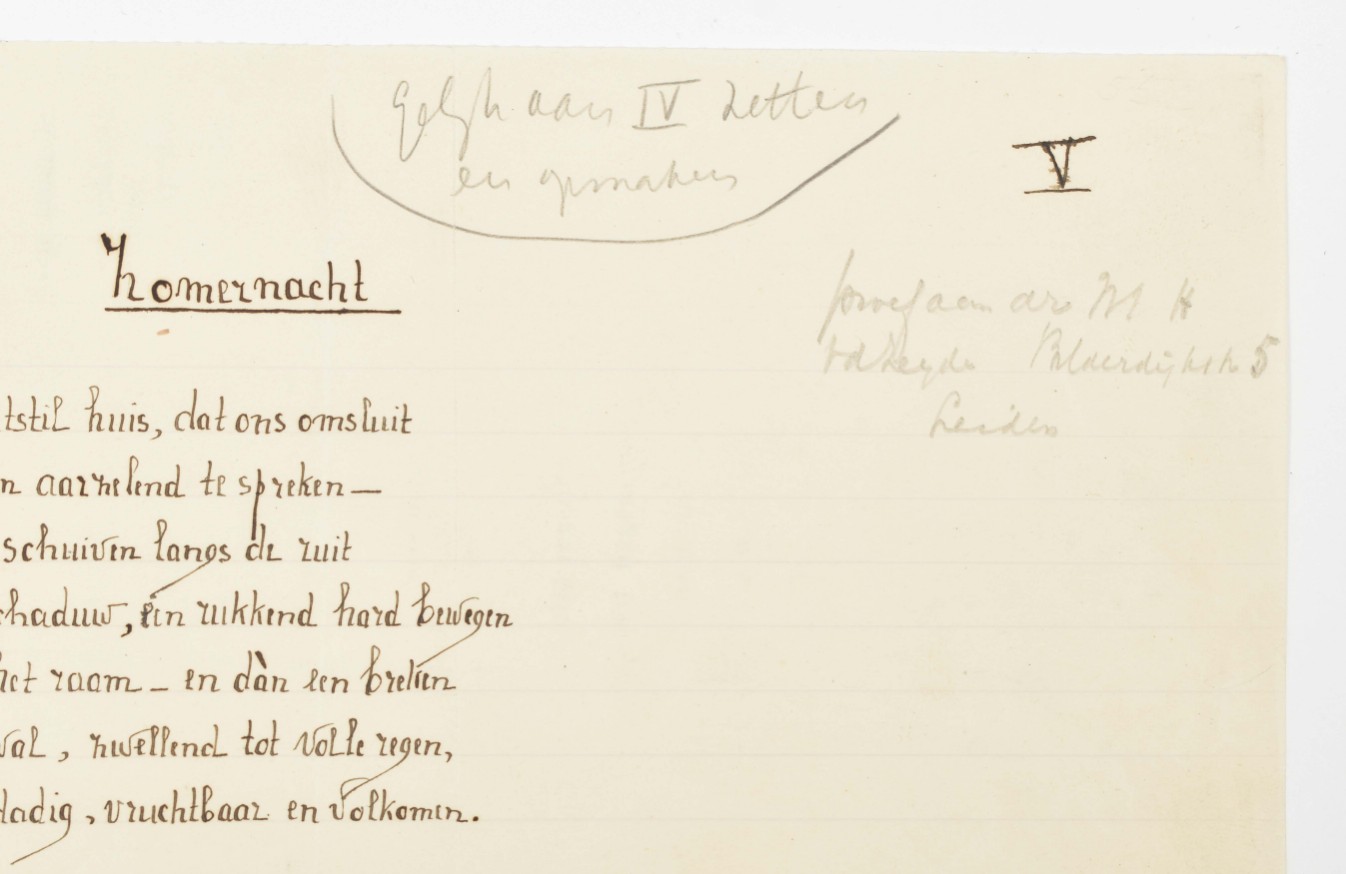 Gelijk aan IV zetten
en opmaken
V
Zomernacht
proef aan drs M H
vd Zeyde Bilderdijkstr 5
Leiden
tstil huis, dat ons omsluit
n aarzelend te spreken —
schuiven langs de ruit
chaduw, een rukkend hard bewegen
het raam — en dàn een breken
val, zwellend tot volle regen,
dadig, vruchtbaar en volkomen.